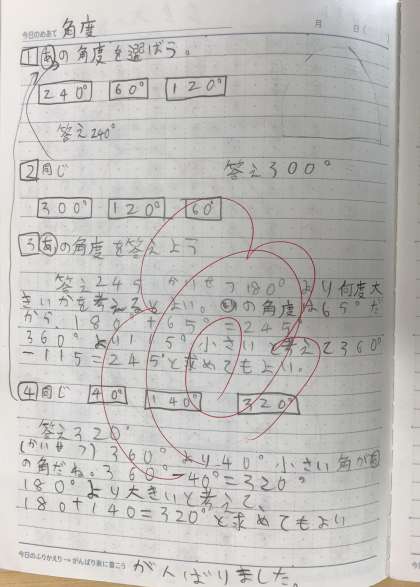 今日のめあて 角度
月 日( )
1 あの角度を選ぼう。
240° 60° 120°
答え240°
2 同じ 答え300°
300° 120° 60°
3 あの角度を答えよう
答え245 かいせつ180°より何度大
きいかを考えるとよい。いの角度は65°だ
から、180°+65°=245°
360°より115°小さいと考えて360°
-115=245°と求めてもよい。
4 同じ 40° 140° 320°
答え320°
(かいせつ)360°より40°小さい角が
の角だね。360°-40°=320°
180°より大きいと考えて、
180+140=320°と求めてもよい
今日のふりかえり→がんばり表に書こう がんばりました。